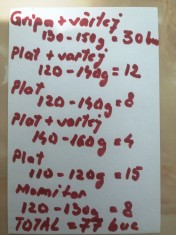 Gripa + vârtej
130-150g = 30 buc
Plat + vartej
120-140g = 12
Plat
120-140g = 8
Plat + vartej
140-160g = 4
Plat
110-120g = 15
Mormitor
120-130g = 8
TOTAL = 77 buc